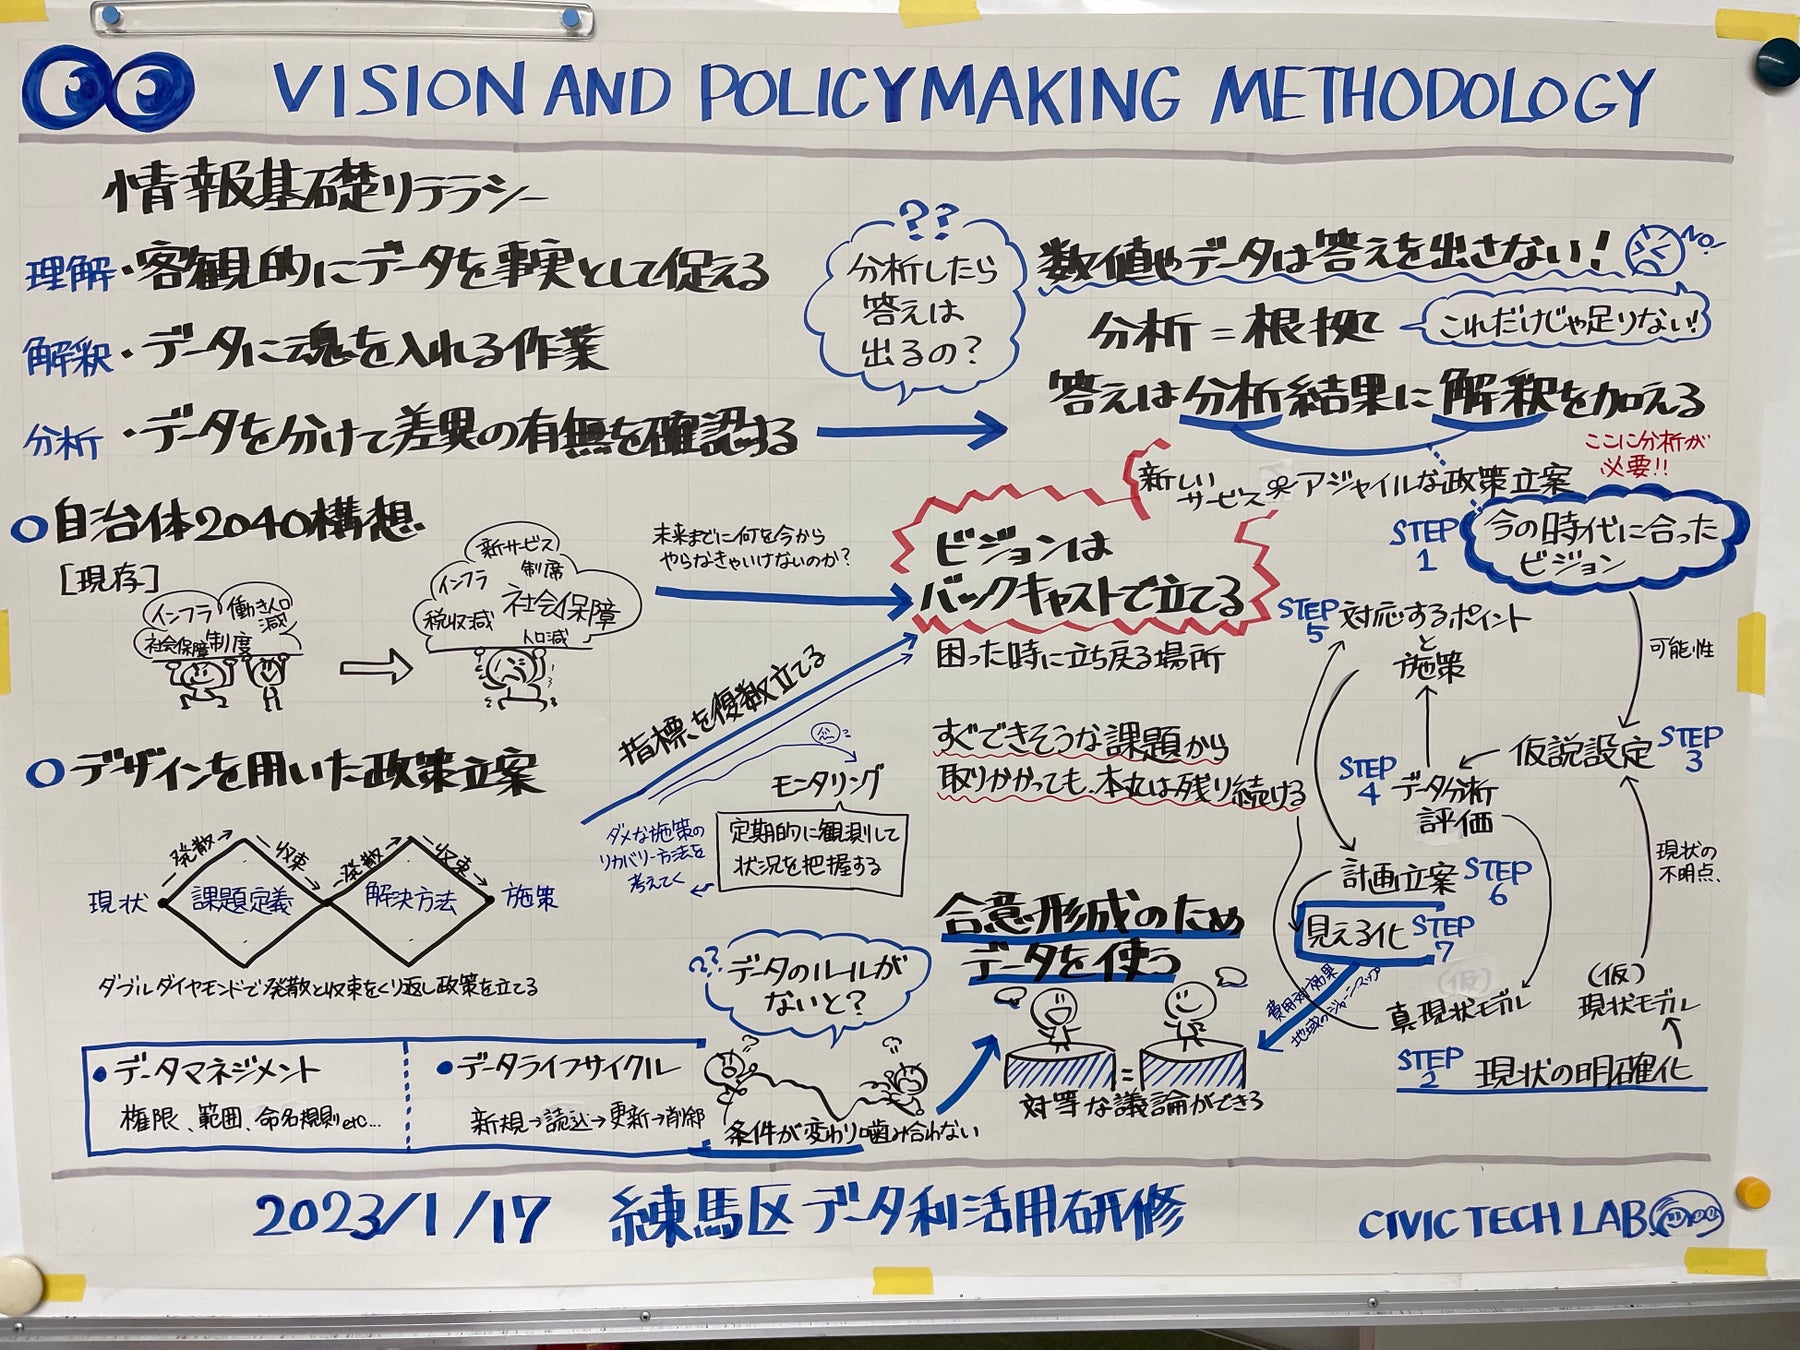 VISION AND POLICYMAKING METHODOLOGY
情報基礎リテラシー
理解・客観的にデータを事実として捉える
解釈・データに魂を入れる作業
分析・データを分けて差異の有無を確認する
??
分析したら
答えは
出るの?
数値やデータは答えを出さない! NO!
分析=根拠
これだけじゃ足りない!
答えは分析結果に解釈を加える
ここに分析が
必要!!
新しい
サービス
アジャイルな政策立案
自治体2040構想
[現存]
インフラ
働き人口
減
社会保障
制度
新サービス
インフラ
制席
税収減
社会保障
人口減
未来までに何を今から
やらなきゃいけないのか?
ビジョンは
バックキャストで立てる
困った時に立ち戻る場所
指標を複数立てる
すぐできそうな課題から
取りかかっても、本丸は残り続ける
モニタリング
定期的に観測して
状況を把握する
ダメな施策の
リカバリー方法を
考えてく
デザインを用いた政策立案
発散
収束
発散
収束
現状
課題定義
解決方法
施策
ダブルダイヤモンドで発散と収束をくり返し政策を立てる
・データマネジメント
権限、範囲、命名規則etc...
・データライフサイクル
新規→読込→更新→削除
??
データのルールが
ないと?
条件が変わり噛み合わない
合意形成のため
データを使う
=
対等な議論ができる
STEP
1
今の時代に合った
ビジョン
可能性
STEP
5
対応するポイント
と
施策
仮説設定
STEP
3
STEP
4
データ分析
評価
現状の
不明点、
計画立案
STEP
6
見える化
STEP
7
費用対効果
地域のジャーニーマップ
(仮)
真現状モデル
(仮)
現状モデル
STEP
2
現状の明確化
2023/1/17 練馬区データ利活用研修
CIVIC TECH LAB